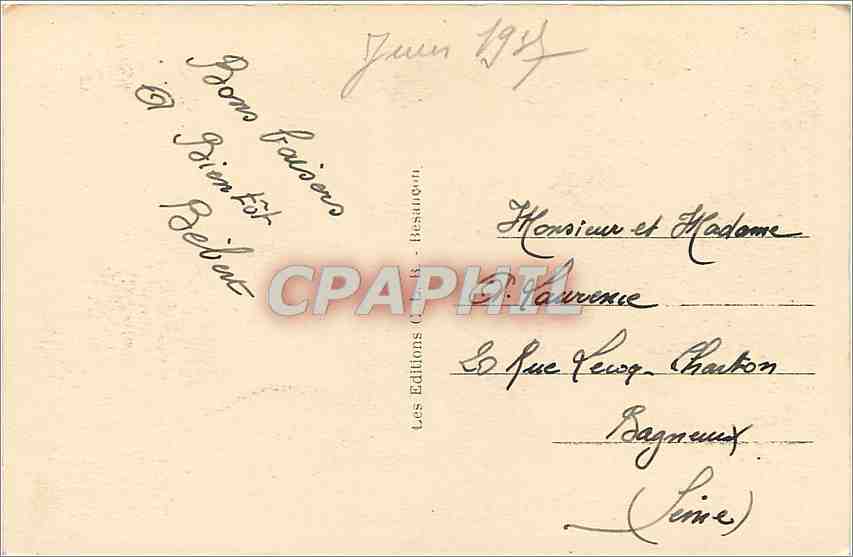 Juin 1937
Bons baisers
A Bientôt
Bébert
Les Editions C. L. B. - Besançon
CPAPHIL
Monsieur et Madame
Laurence
20 Rue Lecoq-Charton
Bagneux
(Seine)